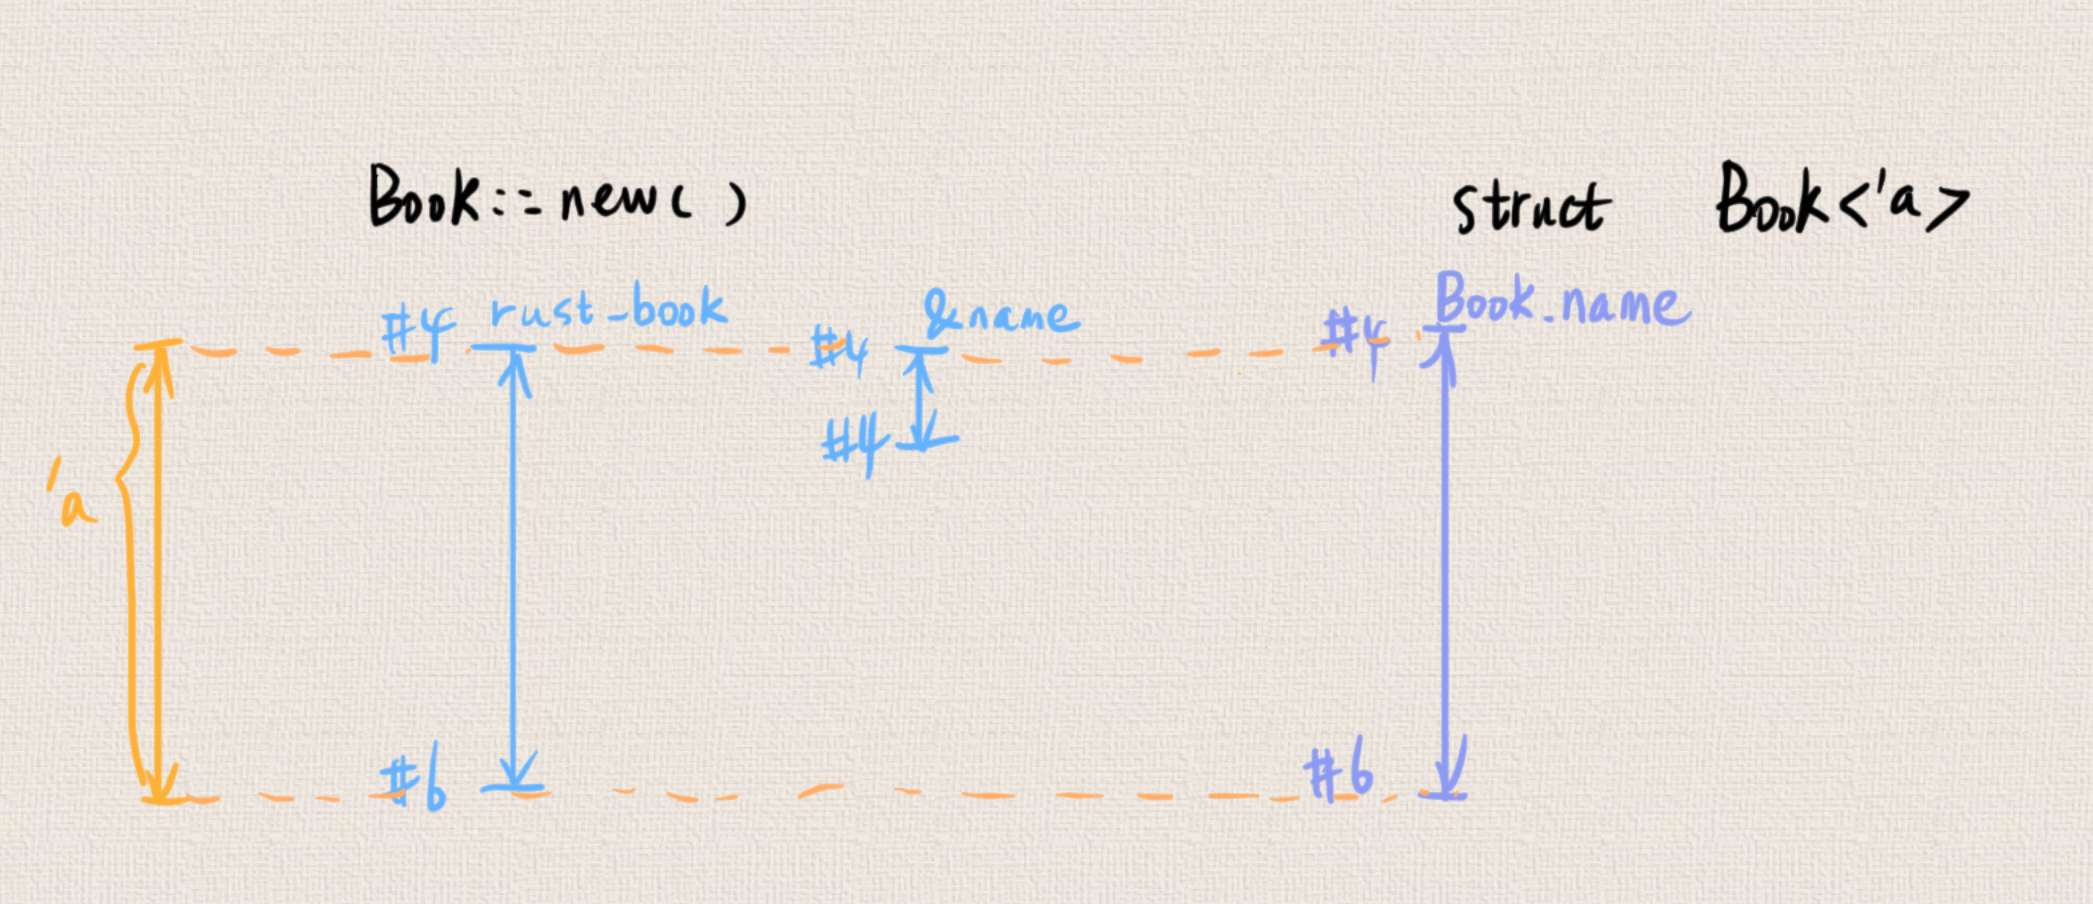 Book::new() struct Book<'a>
#4 rust_book #4 &name #4 Book.name
#4
'a
#6 #6